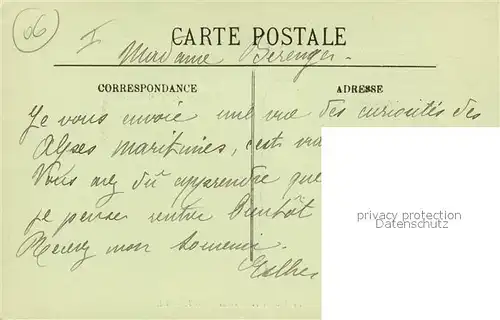 06 I
CARTE POSTALE
Madame Berenger.
CORRESPONDANCE
ADRESSE
Je vous envoie une vue des curiosités des
Alpes maritimes, c'est
Vous avez dû apprendre que
je pense rentrer bientôt
Recevez mon souvenir.
privacy protection
Datenschutz
Esther